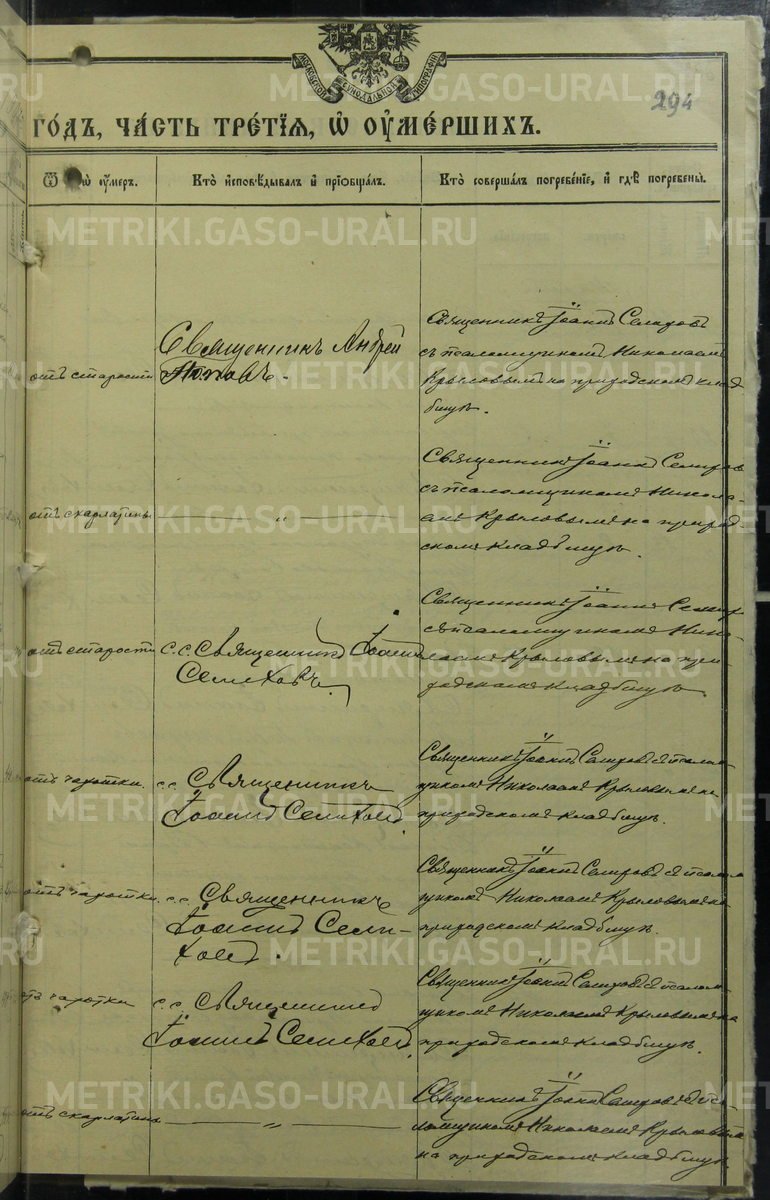 МОСКОВСКОЙ СѴНОДАЛЬНОЙ ТИПОГРАФІИ
294
го́дъ, ча́сть тре́тїѧ, ѡ҆ ᲂу҆ме́ршихъ.
Ѿ ᲂу҆́меръ.
Кто̀ и҆сповѣ́дывалъ и҆ прїобща́лъ.
Кто̀ соверша́лъ погребе́нїе, и҆ гдѣ̀ погребены̀.
отъ старости
Священникъ Андрей
Поповъ.
Священникъ Іоаннъ Селиховъ
съ псаломщикомъ Николаемъ
Крыловымъ на приходскомъ клад
бищѣ.
отъ скарлатины
— „ —
Священникъ Іоаннъ Селихов
съ псаломщикомъ Никола-
емъ Крыловымъ на приход-
скомъ кладбищѣ.
отъ старости
с. с. Священникъ Іоаннъ
Селиховъ.
Священникъ Іоаннъ Селих
съ псаломщикомъ Нико-
лаемъ Крыловымъ на при-
ходскомъ кладбищѣ.
отъ чахотки.
с. с. Священникъ
Іоаннъ Селиховъ.
Священникъ Іоаннъ Селиховъ съ псалом-
щикомъ Николаемъ Крыловымъ на
приходскомъ кладбищѣ.
отъ чахотки.
с. с. Священникъ
Іоаннъ Сели-
ховъ.
Священникъ Іоаннъ Селиховъ съ псалом
щикомъ Николаемъ Крыловымъ на
приходскомъ кладбищѣ.
отъ чахотки
с. с. Священникъ
Іоаннъ Селиховъ.
Священникъ Іоаннъ Селиховъ съ псалом-
щикомъ Николаемъ Крыловымъ на
приходскомъ кладбищѣ.
отъ скарлатины
— „ —
Священникъ Іоаннъ Селиховъ съ пса-
ломщикомъ Николаемъ Крыловым
на приходскомъ кладбищѣ.
METRIKI.GASO-URAL.RU